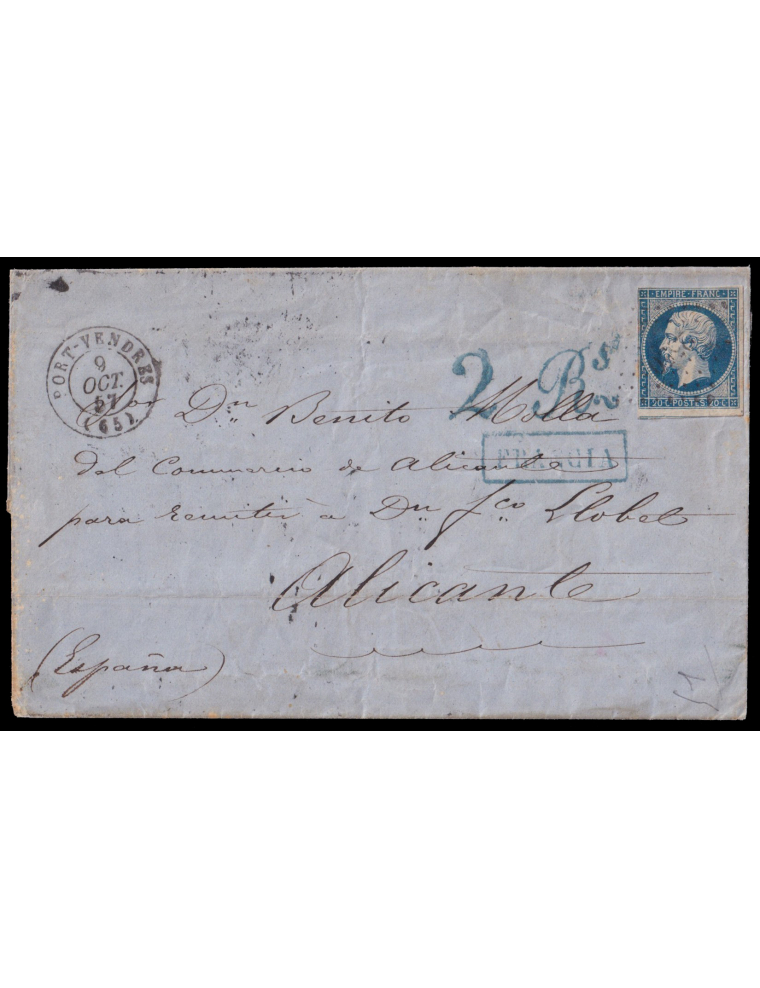 EMPIRE·FRANC·
20 c. POSTES 20 c.
PORT-VENDRES
9
OCT.
57
(65)
2 Rs
Dn Benito Molla
FRANCIA
del Commercio de Alicante
para remitir à Dn fco Llobet
Alicante
(España)